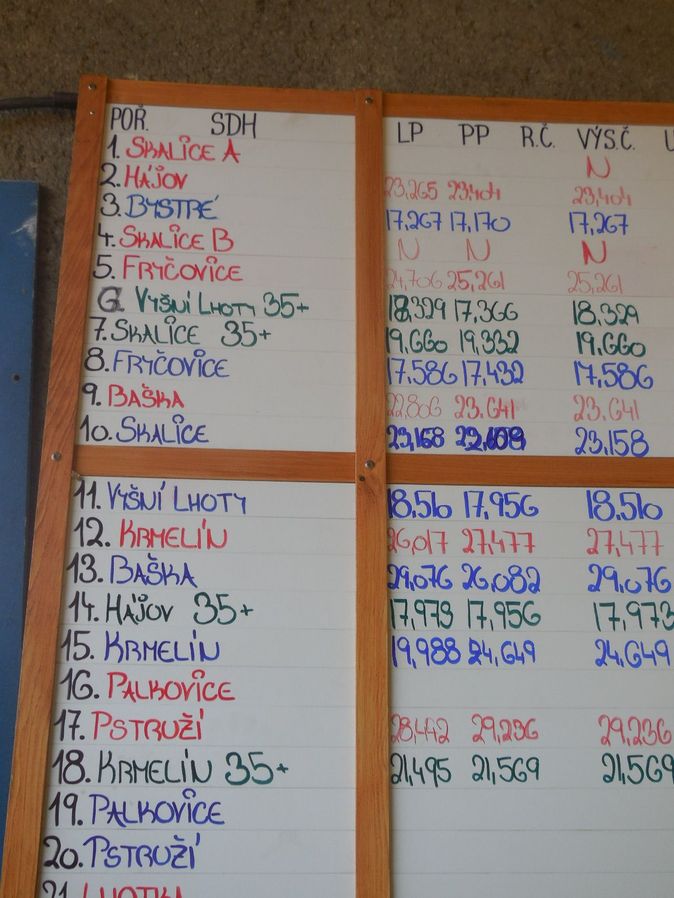 POŘ. SDH LP PP R.Č. VÝS.Č.
1. SKALICE A N
2. HÁJOV 23,265 23,404 23,404
3. BYSTRÉ 17,267 17,170 17,267
4. SKALICE B N N N
5. FRYČOVICE 24,706 25,261 25,261
6. VYŠNÍ LHOTY 35+ 18,329 17,366 18,329
7. SKALICE 35+ 19,660 19,332 19,660
8. FRYČOVICE 17,586 17,432 17,586
9. BAŠKA 22,806 23,641 23,641
10. SKALICE 23,158
11. VYŠNÍ LHOTY 18,510 17,956 18,510
12. KRMELÍN 26,017 27,477 27,477
13. BAŠKA 29,076 26,082 29,076
14. HÁJOV 35+ 17,973 17,956 17,973
15. KRMELÍN 19,988 24,649 24,649
16. PALKOVICE
17. PSTRUŽÍ 28,442 29,236 29,236
18. KRMELÍN 35+ 21,495 21,569 21,569
19. PALKOVICE
20. PSTRUŽÍ
21. LHOTKA